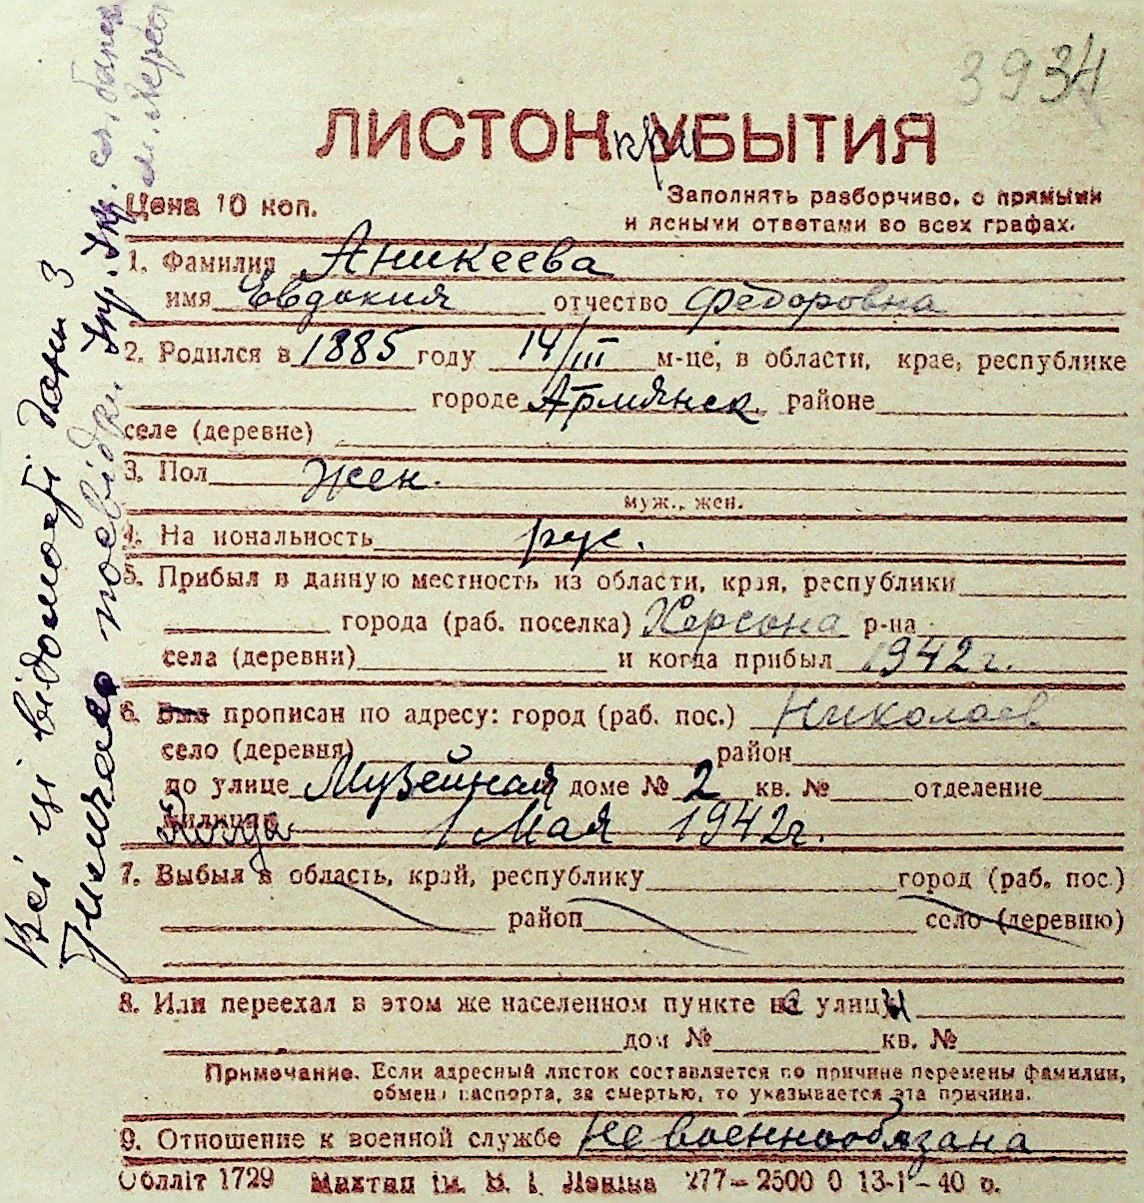 3934
ЛИСТОК прибытия
Цена 10 коп.
Заполнять разборчиво, с прямыми
и ясными ответами во всех графах.
1. Фамилия Аникеева
имя Евдокия отчество Федоровна
2. Родился в 1885 году 14/III м-це, в области, крае, республике
городе Армянск районе
селе (деревне)
3. Пол жен.
муж., жен.
4. Национальность рус.
5. Прибыл в данную местность из области, края, республики
города (раб. поселка) Херсона р-на
села (деревни) и когда прибыл 1942 г.
6. Был прописан по адресу: город (раб. пос.) Николаев
село (деревня) район
по улице Музейная доме № 2 кв. № отделение
милиции Когда 1 Мая 1942 г.
7. Выбыл в область, край, республику город (раб. пос.)
район село (деревню)
8. Или переехал в этом же населенном пункте с улицы
дом № кв. №
Примечание. Если адресный листок составляется по причине перемены фамилии,
обмена паспорта, за смертью, то указывается эта причина.
9. Отношение к военной службе Не военнообязана
Обллiт 1729 Миктап iм. В. I. Ленiна 277–2500 0 13-I–40 р.
Всі ці відомості дані з
Тимчасов. посвідки